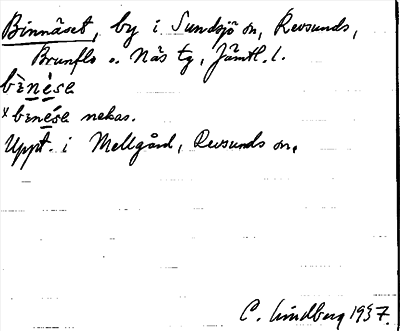 Binnäset, by i Sundsjö sn, Revsunds,
Brunflo o. Näs tg, Jämtl. l.
bènésɛ
x bɩnésɛ nekas.
Uppt. i Mellgård, Revsunds sn.
C. Lindberg 1937.